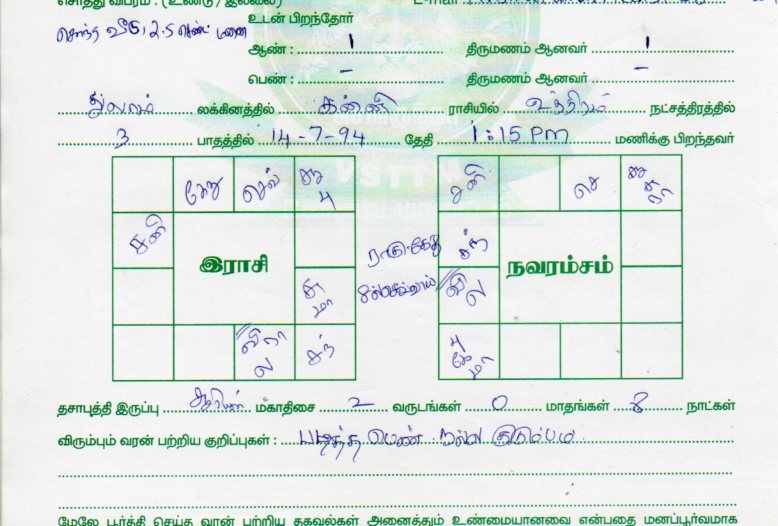 சொத்து விபரம் : (உண்டு / இல்லை) E-mail
சொந்த வீடு, 2.5 சென்ட் மனை உடன் பிறந்தோர்
ஆண் : 1 திருமணம் ஆனவர் 1
பெண் : - திருமணம் ஆனவர் -
துலாம் லக்கினத்தில் கன்னி ராசியில் உத்திரம் நட்சத்திரத்தில்
3 பாதத்தில் 14-7-94 தேதி 1:15 Pm மணிக்கு பிறந்தவர்
கேது செவ் சூ பு
சனி செ
சனி
இராசி
ராகு-கேது
நவராம்சம்
சந்
சந்
தசாபுத்தி இருப்பு சூரியன் மகாதிசை 2 வருடங்கள் 0 மாதங்கள் 8 நாட்கள்
விரும்பும் வரன் பற்றிய குறிப்புகள் : படித்த பெண் நல்ல குடும்பம்
மேலே பூர்த்தி செய்த வரன் பற்றிய தகவல்கள் அனைத்தும் உண்மையானவை என்பதை மனப்பூர்வமாக